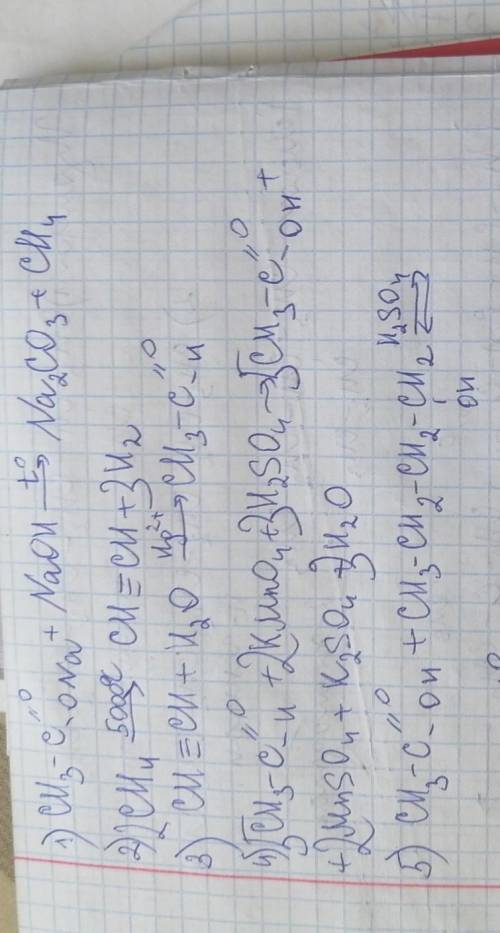 1) CH3-C(=O)-ONa + NaOH t°→ Na2CO3 + CH4
2) 2CH4 1500°C→ CH≡CH + 3H2
3) CH≡CH + H2O Hg2+→ CH3-C(=O)-H
4) 5CH3-C(=O)-H + 2KMnO4 + 3H2SO4 → 5CH3-C(=O)-OH +
+ 2MnSO4 + K2SO4 + 3H2O
5) CH3-C(=O)-OH + CH3-CH2-CH2-CH2-OH H2SO4⇄